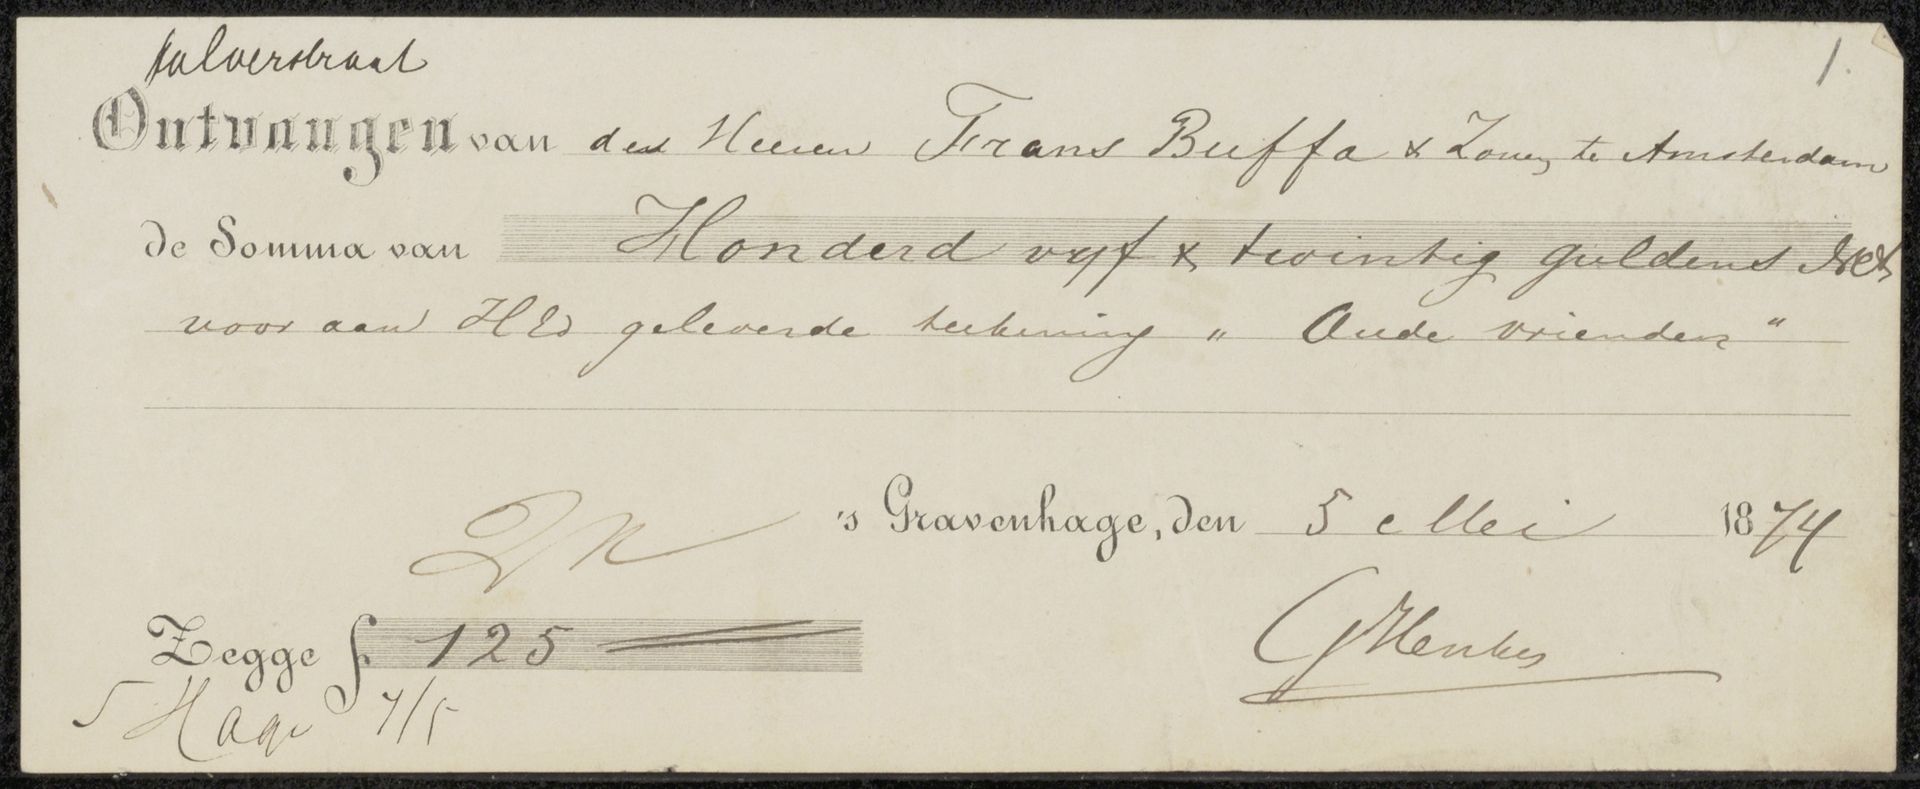 Kalverstraat
1.
Ontvangen van den Heeren Frans Buffa & Zonen te Amsterdam
de Somma van Honderd vyf & twintig guldens
voor aan HEd geleverde teekening „ Oude vrienden "
's Gravenhage, den 5 Mei 1874
Zegge ƒ 125
GHenkes
s Hage 7/5